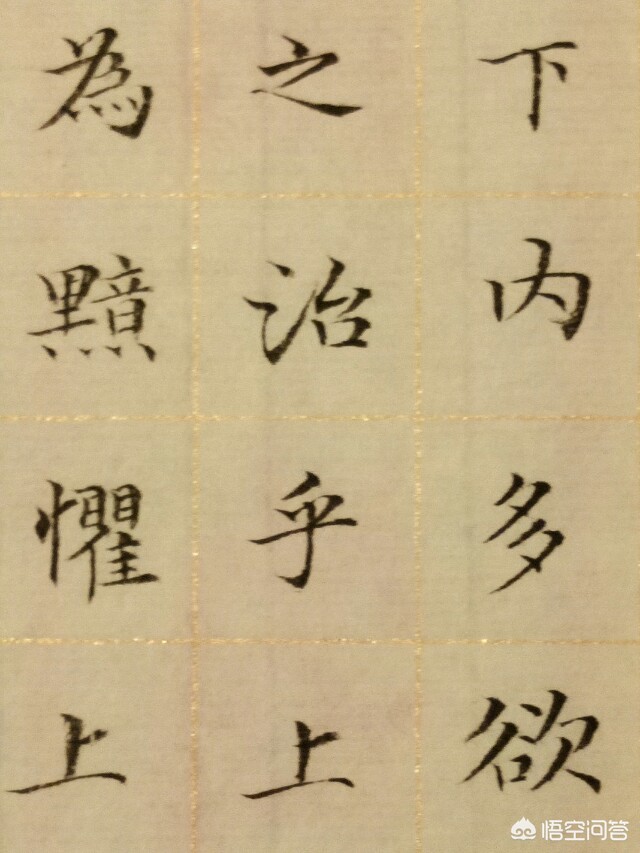 下内多欲
之治乎上
為黯懼上
悟空问答